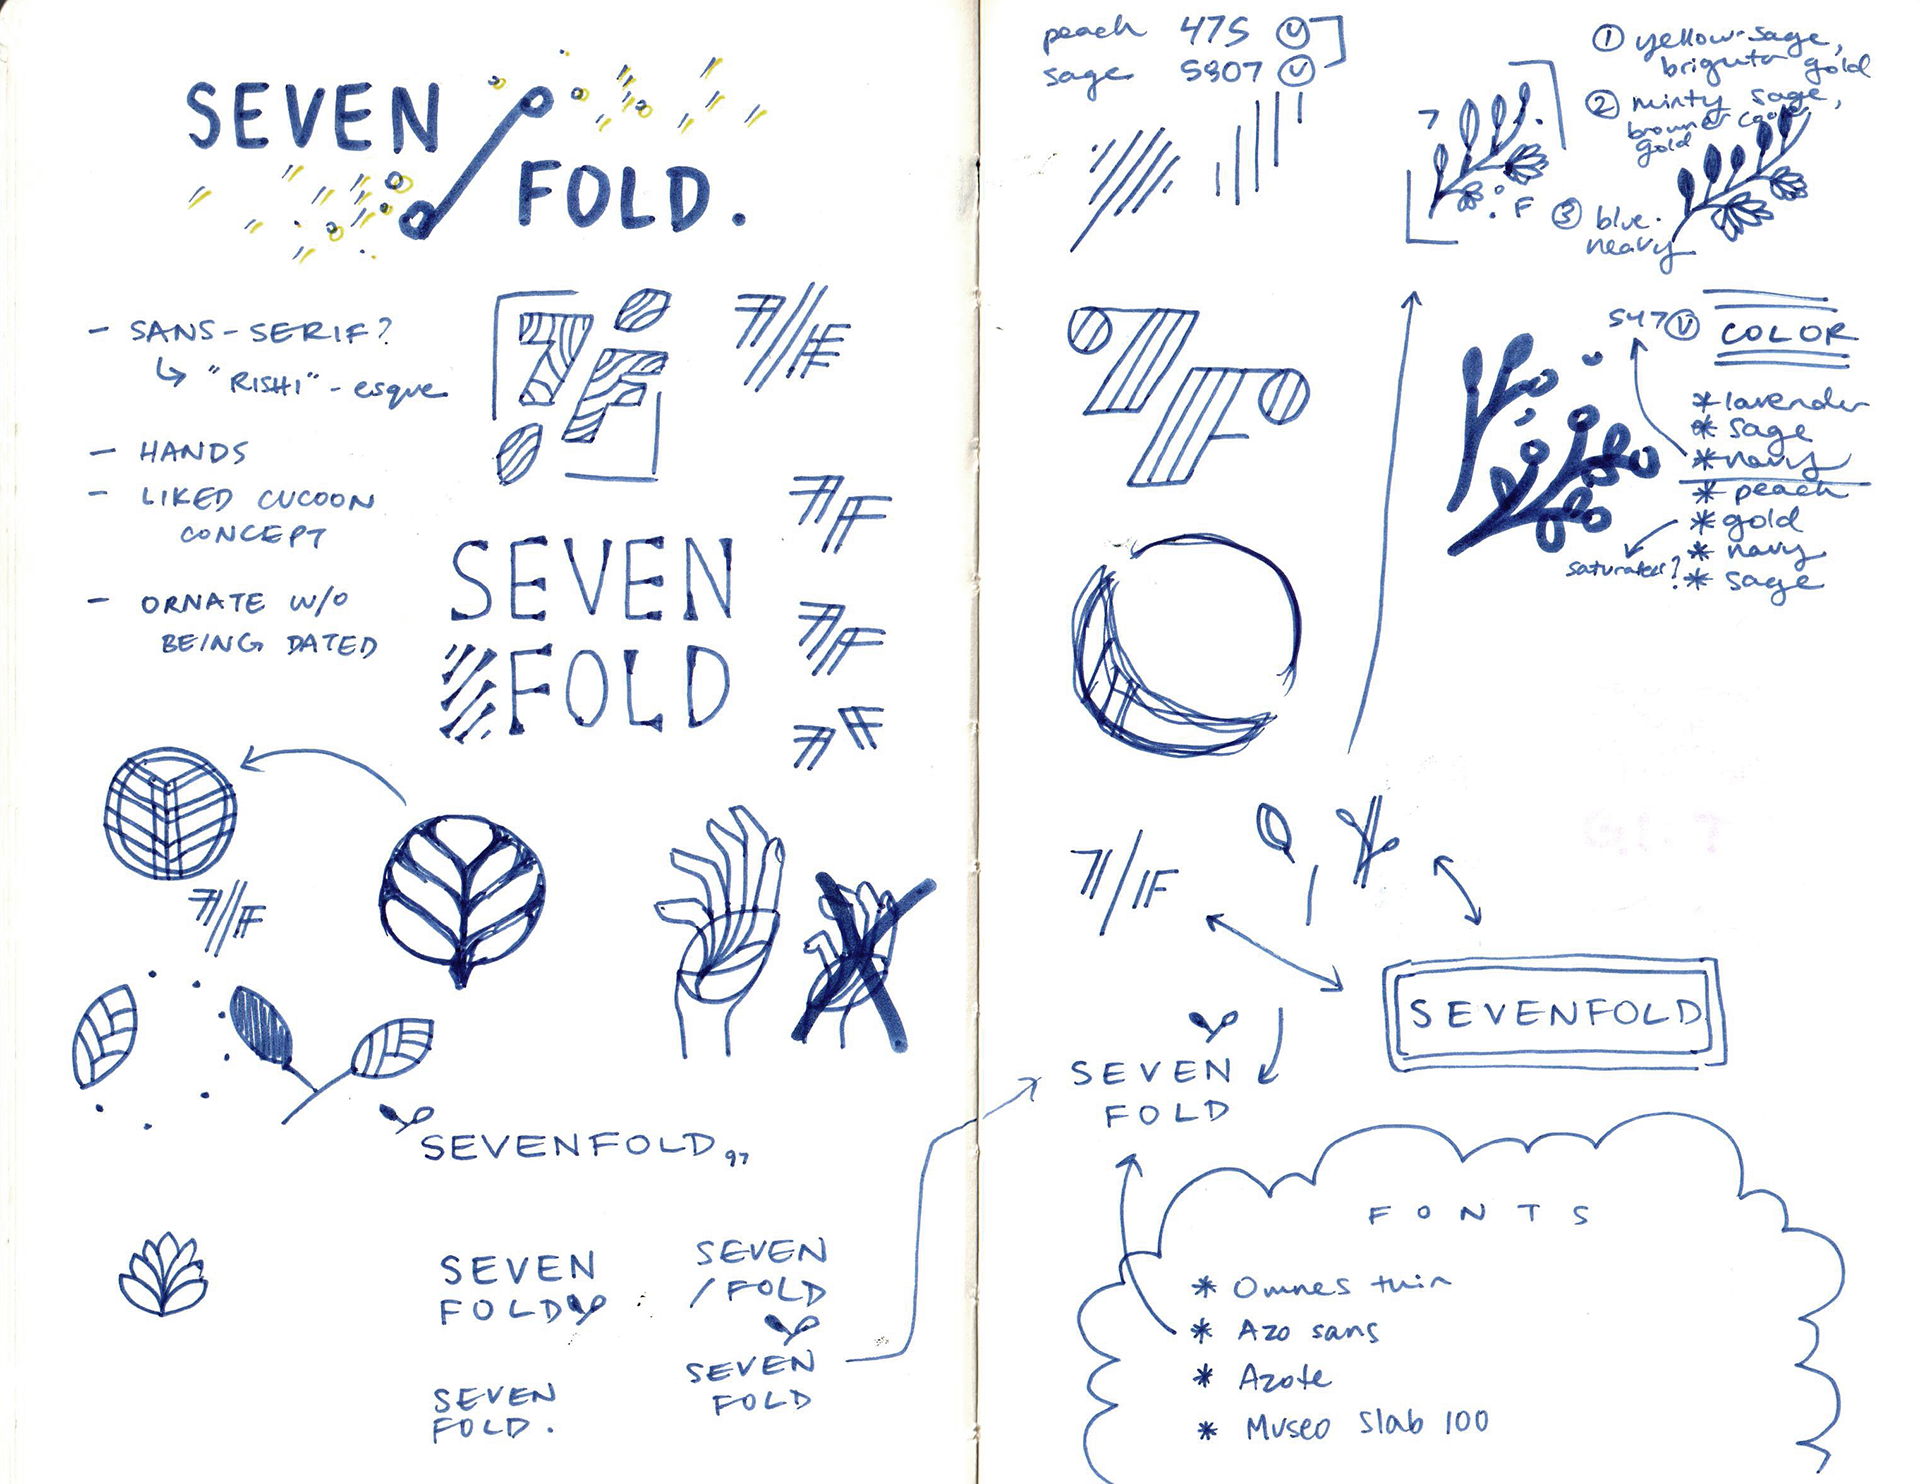 SEVEN
FOLD.
- SANS-SERIF?
↳ "RISHI" - esque
- HANDS
- LIKED CUCOON
CONCEPT
- ORNATE W/O
BEING DATED
7F
7/F
7F
7F
7F
SEVEN
FOLD
7/F
SEVENFOLD
SEVEN
FOLD
SEVEN
/FOLD
SEVEN
FOLD
SEVEN
FOLD.
peach 475 U
sage 5807 U
7
F
1 yellow-sage,
brighter gold
2 minty sage,
browner
gold
3 blue-
heavy
7F
547 U
COLOR
* lavender
* sage
* navy
* peach
* gold
* navy
* sage
saturated?
7/F
SEVENFOLD
SEVEN
FOLD
FONTS
* Omnes thin
* Azo sans
* Azote
* Museo Slab 100